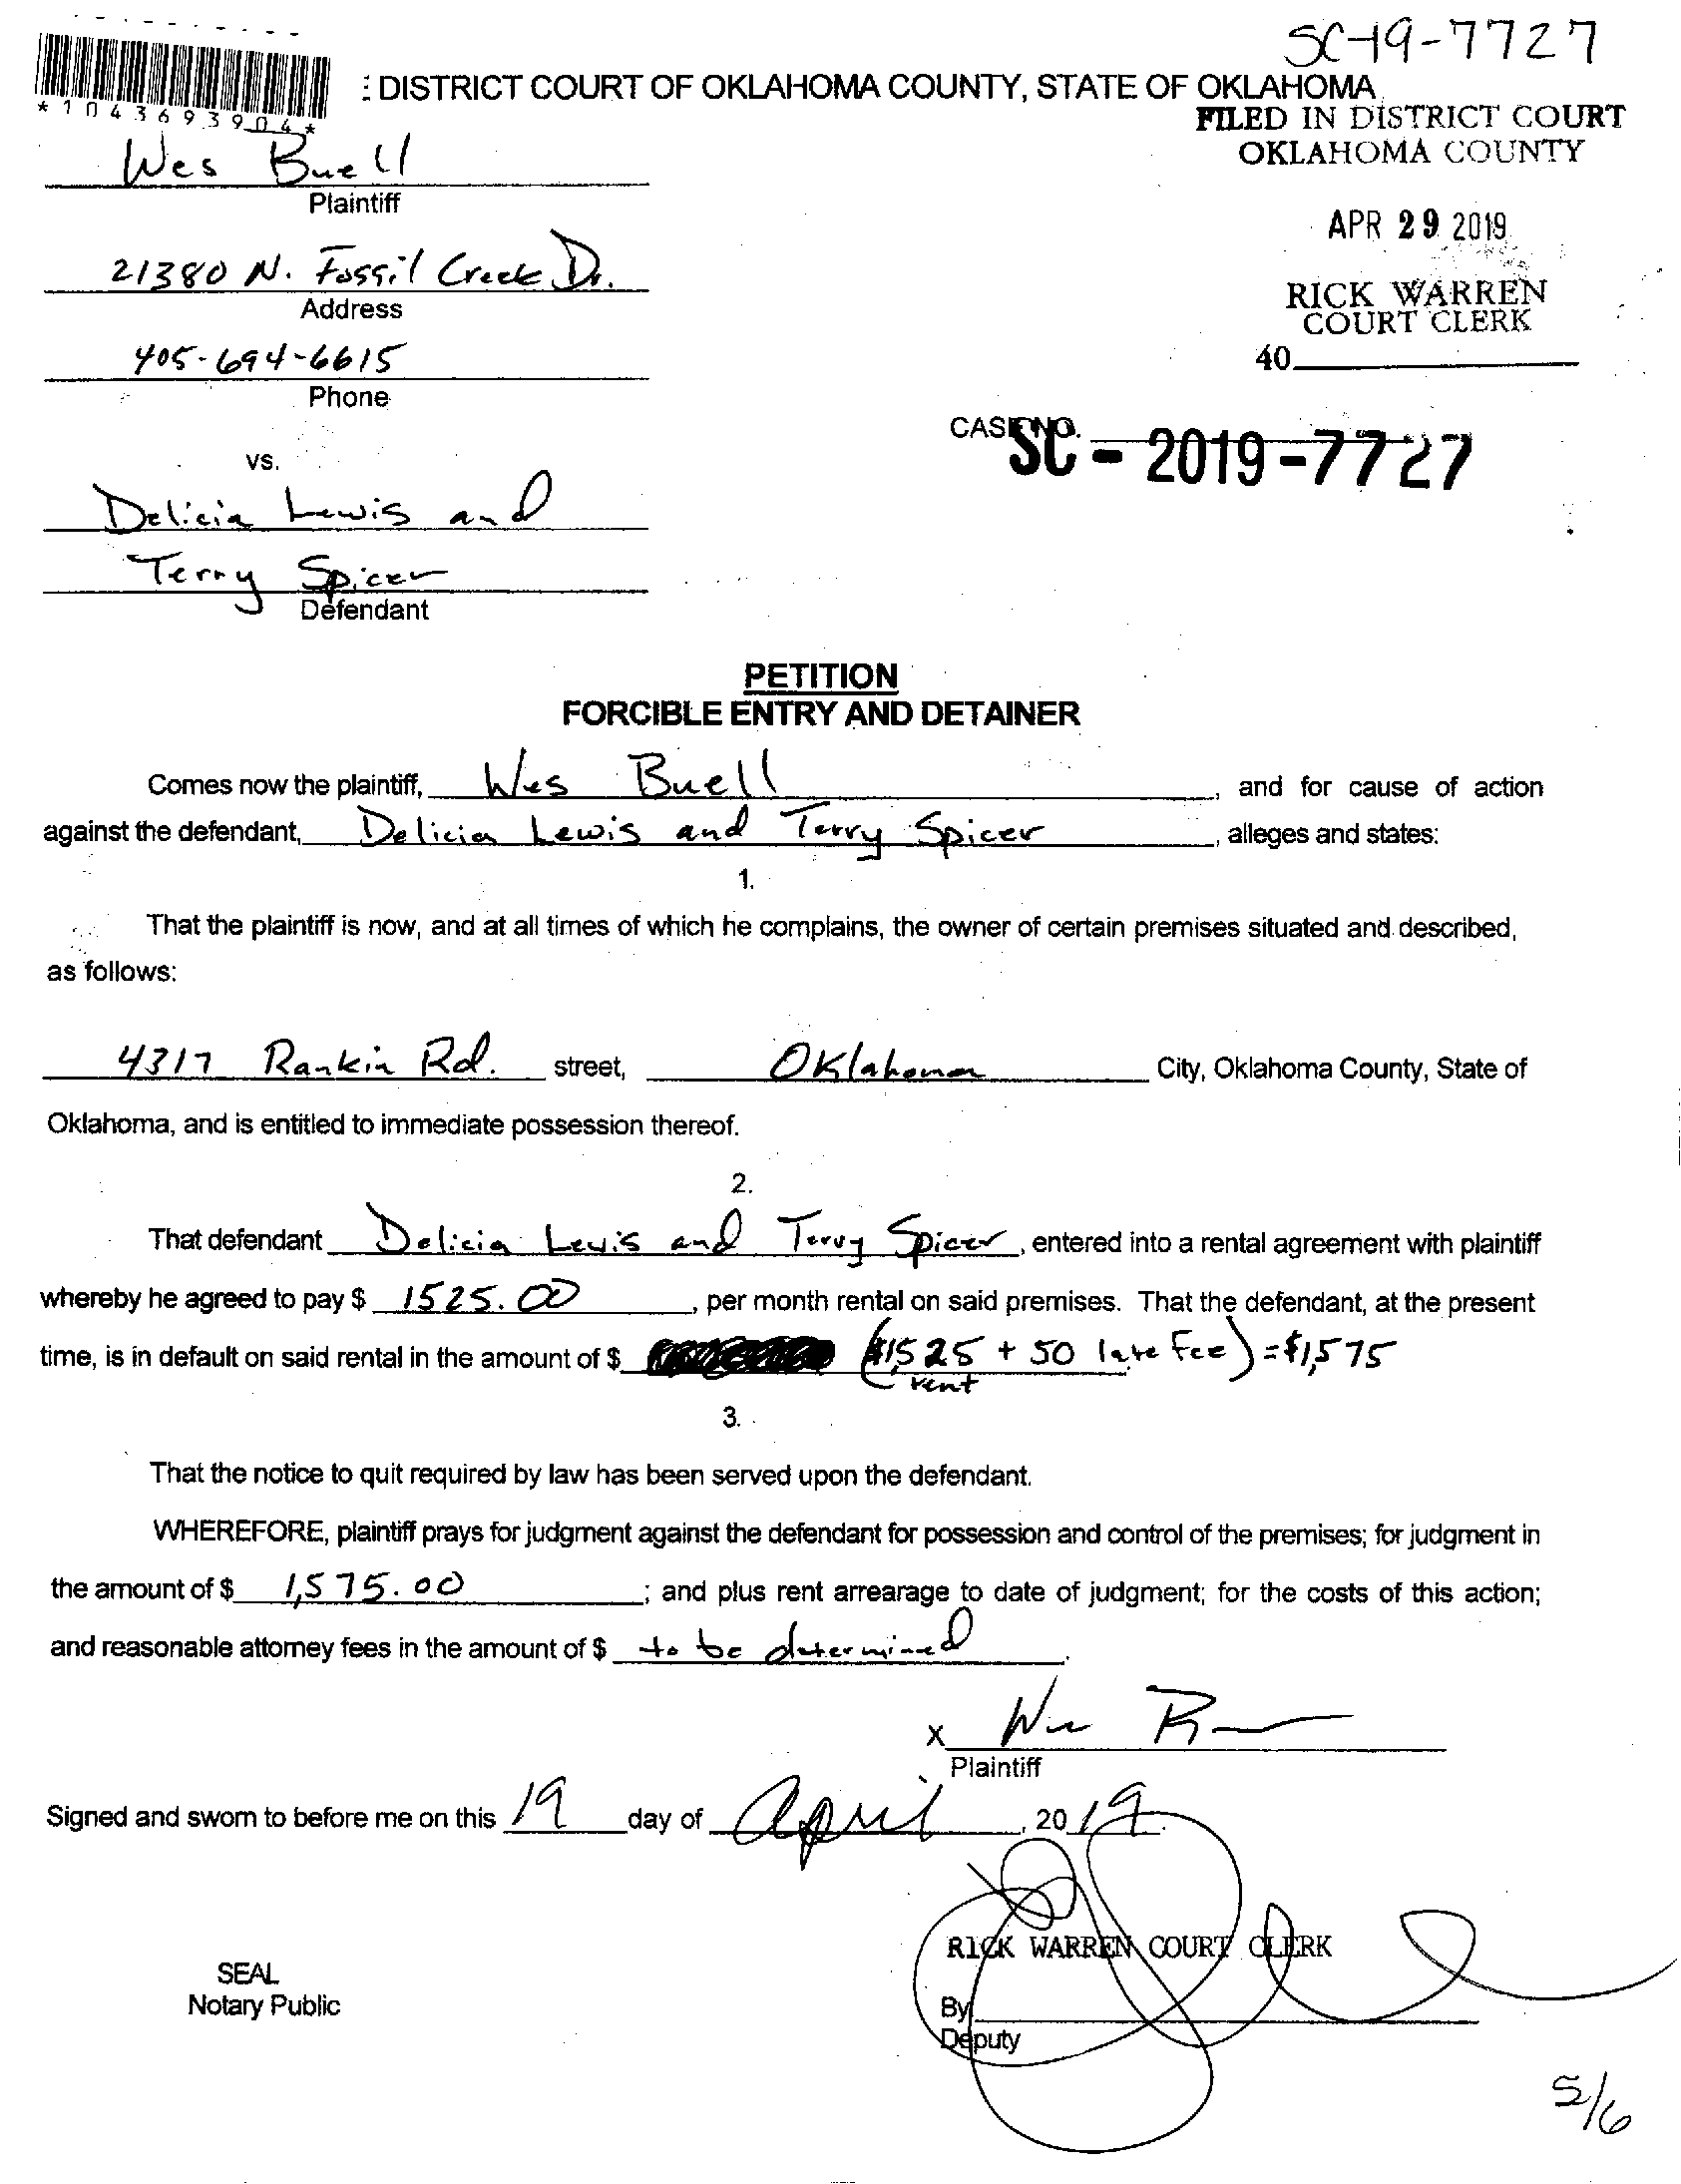 SC-19-7727
: DISTRICT COURT OF OKLAHOMA COUNTY, STATE OF OKLAHOMA
*1043693904*
FILED IN DISTRICT COURT
OKLAHOMA COUNTY
Wes Buell
Plaintiff
APR 29 2019
21380 N. Fossil Creek Dr.
Address
RICK WARREN
COURT CLERK
405-694-6615
40
Phone
CASE NO.
SC - 2019-7727
vs.
Delicia Lewis and
Terry Spicer
Defendant
PETITION
FORCIBLE ENTRY AND DETAINER
Comes now the plaintiff, Wes Buell, and for cause of action
against the defendant, Delicia Lewis and Terry Spicer, alleges and states:
1.
That the plaintiff is now, and at all times of which he complains, the owner of certain premises situated and described,
as follows:
4317 Rankin Rd. street, Oklahoma City, Oklahoma County, State of
Oklahoma, and is entitled to immediate possession thereof.
2.
That defendant Delicia Lewis and Terry Spicer, entered into a rental agreement with plaintiff
whereby he agreed to pay $ 1525.00, per month rental on said premises. That the defendant, at the present
time, is in default on said rental in the amount of $ ($1525 + 50 late fee) = $1,575
rent
3.
That the notice to quit required by law has been served upon the defendant.
WHEREFORE, plaintiff prays for judgment against the defendant for possession and control of the premises; for judgment in
the amount of $ 1,575.00; and plus rent arrearage to date of judgment; for the costs of this action;
and reasonable attorney fees in the amount of $ to be determined.
X
Plaintiff
Signed and sworn to before me on this 19 day of April, 2019.
RICK WARREN COURT CLERK
SEAL
Notary Public
By
Deputy
5/6